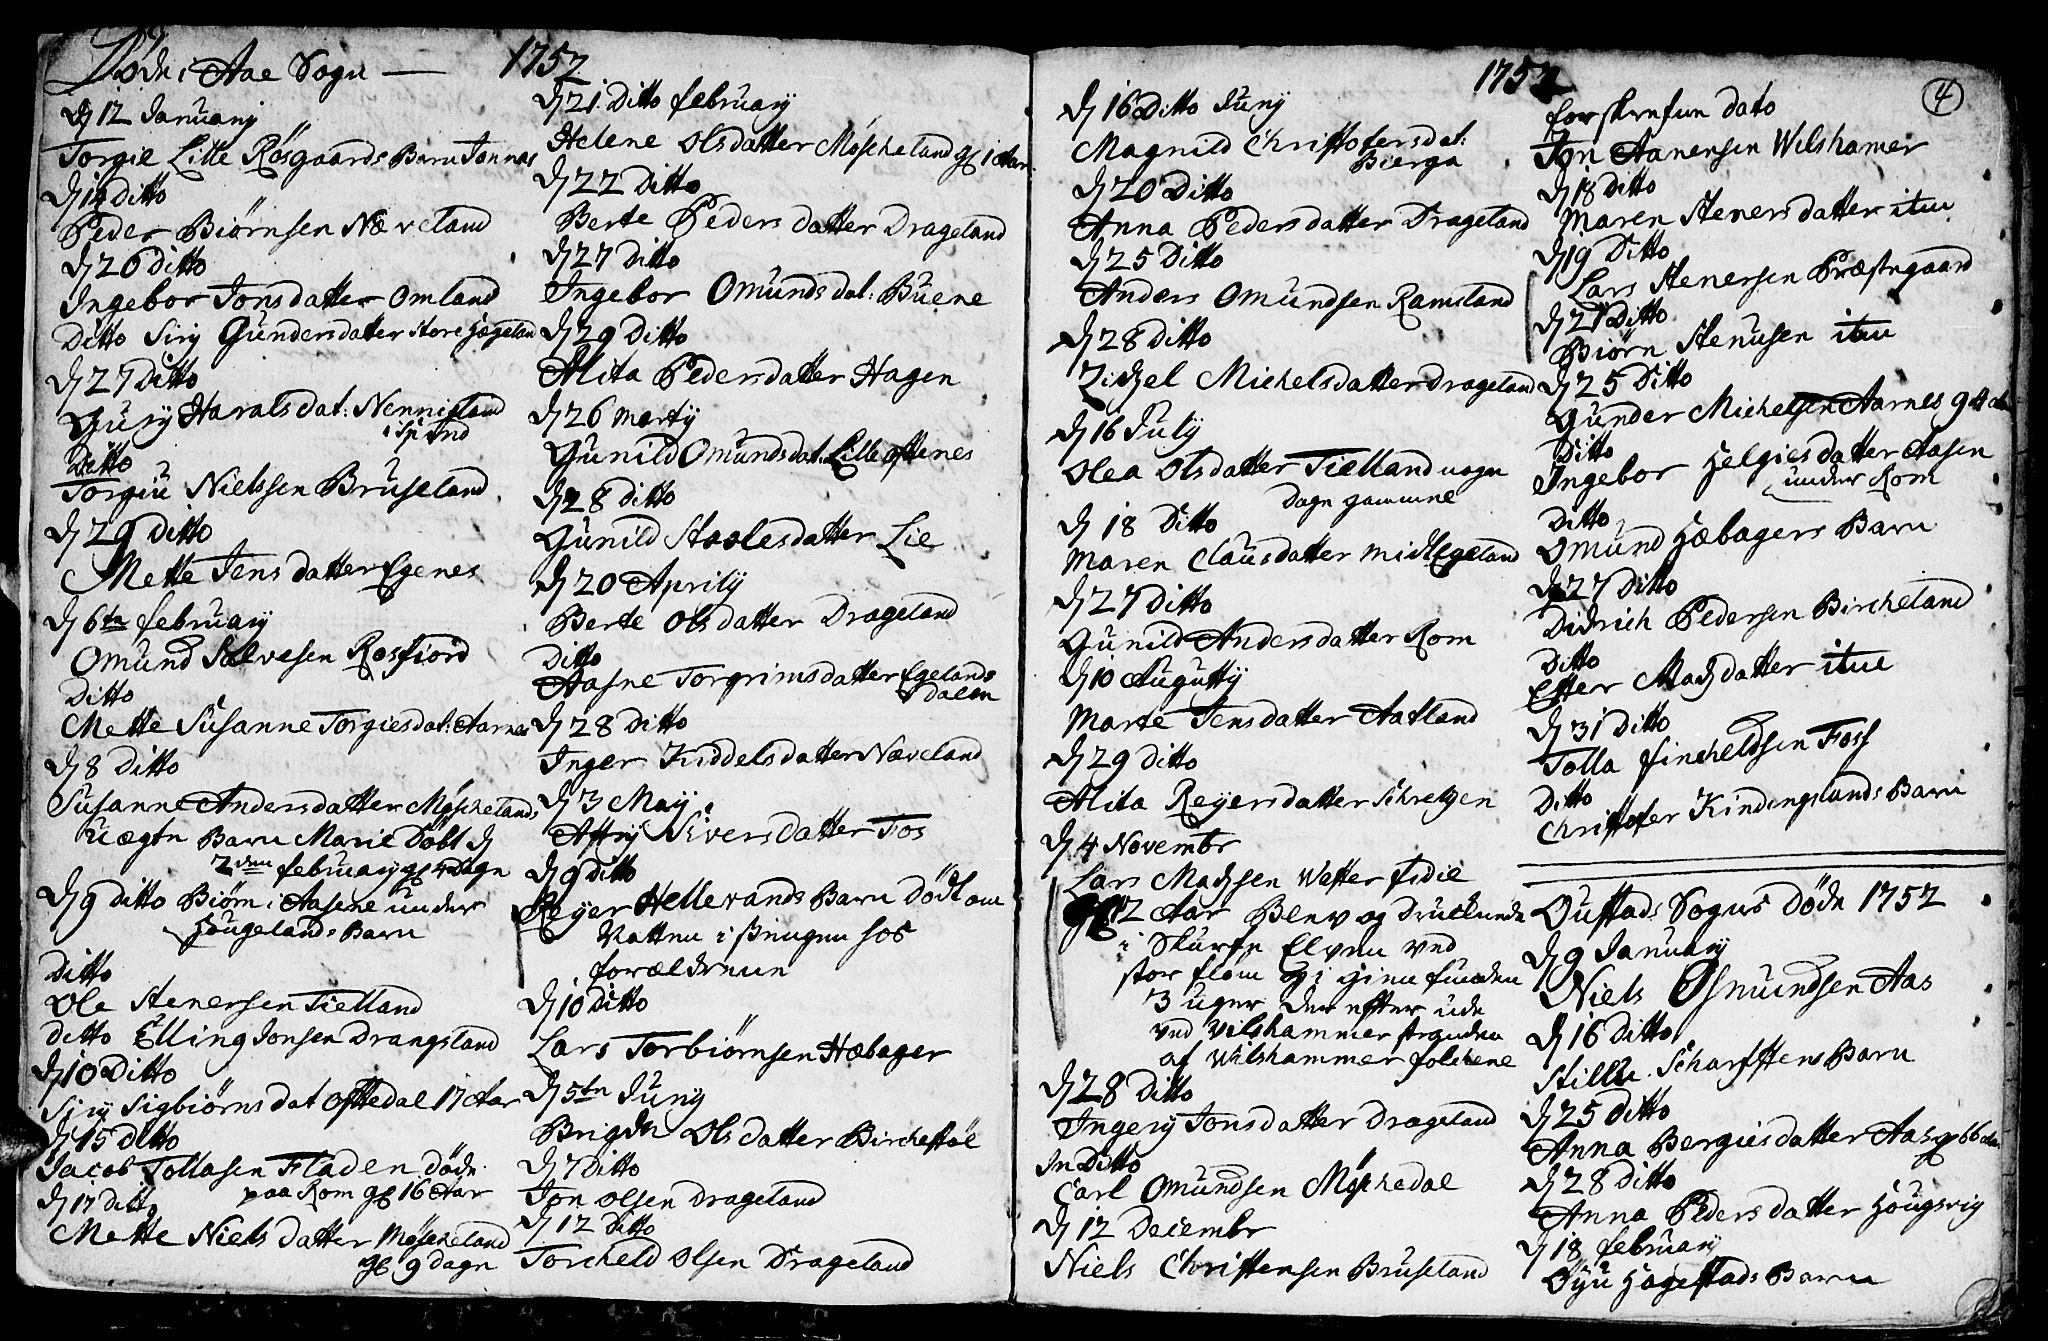 Døde i Aae Sogn — 1752
D 12 Januarij
Torgie Lille Røsgaards Barn Jonnas
D 14 Ditto
Peder Biørnsen Næveland
D 26 Ditto
Ingebor Jonsdatter Omland
Ditto Sirj Gundersdatter Store Høgeland
D 27 Ditto
Gurj Haralsdat: Nennisland
i Spind
Ditto
Torgiu Nielssen Bruseland
D 29 Ditto
Mette Jens datter Egenes
D 6te februarij
Omund Salvesen Rosfiord
Ditto
Mette Susanne Torgiesdat: Aarnæs
D 8 Ditto
Susanne Andersdatter Møskelands
Uægte Barn Marie Døbt D
2den februarij gl 4 Dage
D 9 ditto Biørn i Aasene under
Hougelands Barn
Ditto
Ole Stenersen Tielland
Ditto Elling Jonsen Drangsland
D 10 Ditto
Sirj Sigbiørns dat Oftedal 17 Aar
D 15 Ditto
Jacob Tollasen Fladen døde
paa Rom gl 16 Aar
D 17 Ditto
Mette Niels datter Møskeland
gl 9 dage
D 21 Ditto februarij
Helene Olsdatter Møskeland gl 1 Aar
D 22 Ditto
Berte Peders datter Drageland
D 27 Ditto
Ingebor Omunds dat: Buene
D 29 Ditto
Alita Pedersdatter Hagen
D 26 Martij
Gunild Omunds dat: Lille Oftenes
D 28 ditto
Gunild Staalesdatter Lie
D 20 Aprilij
Berte Olsdatter Drageland
Ditto
Aasne Torgrimsdatter Egelands
dalen
D 28 Ditto
Inger Kiddelsdatter Næveland
D 3 Maij
Astrj Siversdatter Fos
D 9 Ditto
Reyer Hellevands Barn Dødt om
Natten i Sengen hos
forældrene
D 10 Ditto
Lars Torbiørnsen Hæbager
D 5te Junij
Brigde Ols datter Birkestøl
D 7 Ditto
Jon Olsen Drageland
D 12 Ditto
Torcheld Olsen Drageland
1752
D 16 Ditto Junij
Magnild Christofersdat:
Bierga
D 20 Ditto
Anna Pedersdatter Drageland
D 25 Ditto
Anders Omundsen Ramsland
D 28 ditto
Zidzel Michelsdatter Drageland
D 16 Julij
Olea Olsdatter Tielland nogle
Dage gammel
D 18 Ditto
Maren Clausdatter Midt Egeland
D 27 Ditto
Gunild Andersdatter Rom
D 10 Augustij
Marte Jensdatter Aatland
D 29 ditto
Alita Reyersdatter Skretzen
D 4 Novembr
Lars Madzsen Wester Eidie
gl 12 Aar Blev og Druknede
i Skurfe Elven ved
stor flom og igien funden
3 uger der efter ude
ved Vilshammer stranden
af Wilshammer folchene
D 28 Ditto
Ingerj Jonsdatter Drageland
In Ditto
Carl Omundsen Møskedal
D 12 Decembr
Niels Christensen Bruseland
forskrefne dato
Jon Aanensen Wilshamer
D 18 Ditto
Maren Stenersdatter item
D 19 Ditto
Lars Stenersen Præstegaard
D 21 Ditto
Biørn Stenersen item
D 25 Ditto
Gunder Michelsen Aarnes
Ditto
Ingebor Helgiesdatter Aasen
under Rom
Ditto
Omund Hæbagers Barn
D 27 Ditto
Didrich Pedersen Bircheland
Ditto
Ester Madzdatter item
D 31 Ditto
Tolla Fincheldsen Foss
Ditto
Christofer Kindingslands Barn
Oustads Sogns døde 1752
D 9 Januarij
Niels Osmundsen Aas
D 16 Ditto
Stille Scharfstens Barn
D 25 Ditto
Anna Bergiesdatter Aas gl 66 Aar
D 28 Ditto
Anna Peders datter Hougsvig
D 18 februarij
Øyu Hagestads Barn
4